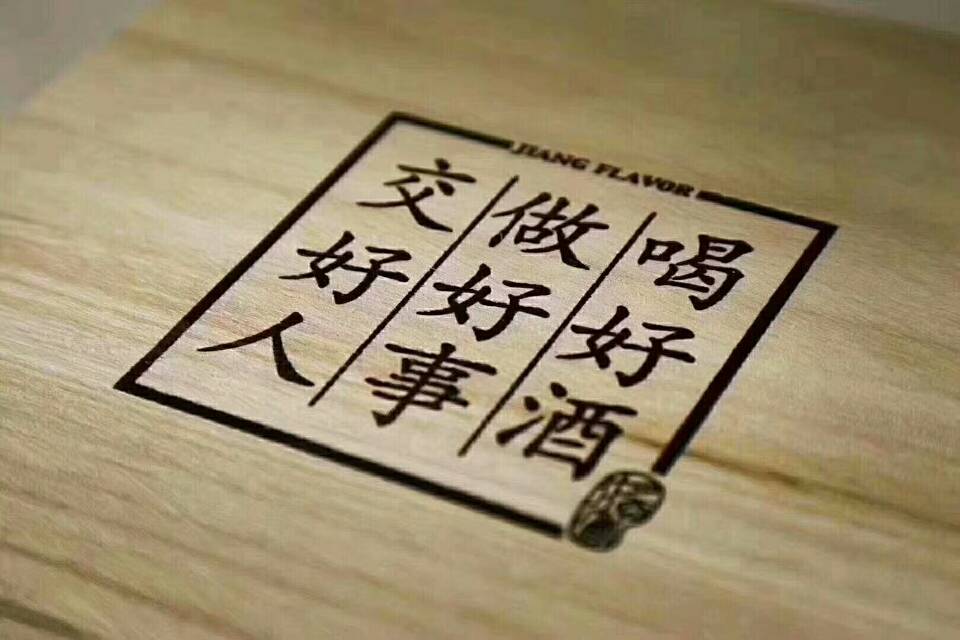 JIANG FLAVOR
喝好酒
做好事
交好人